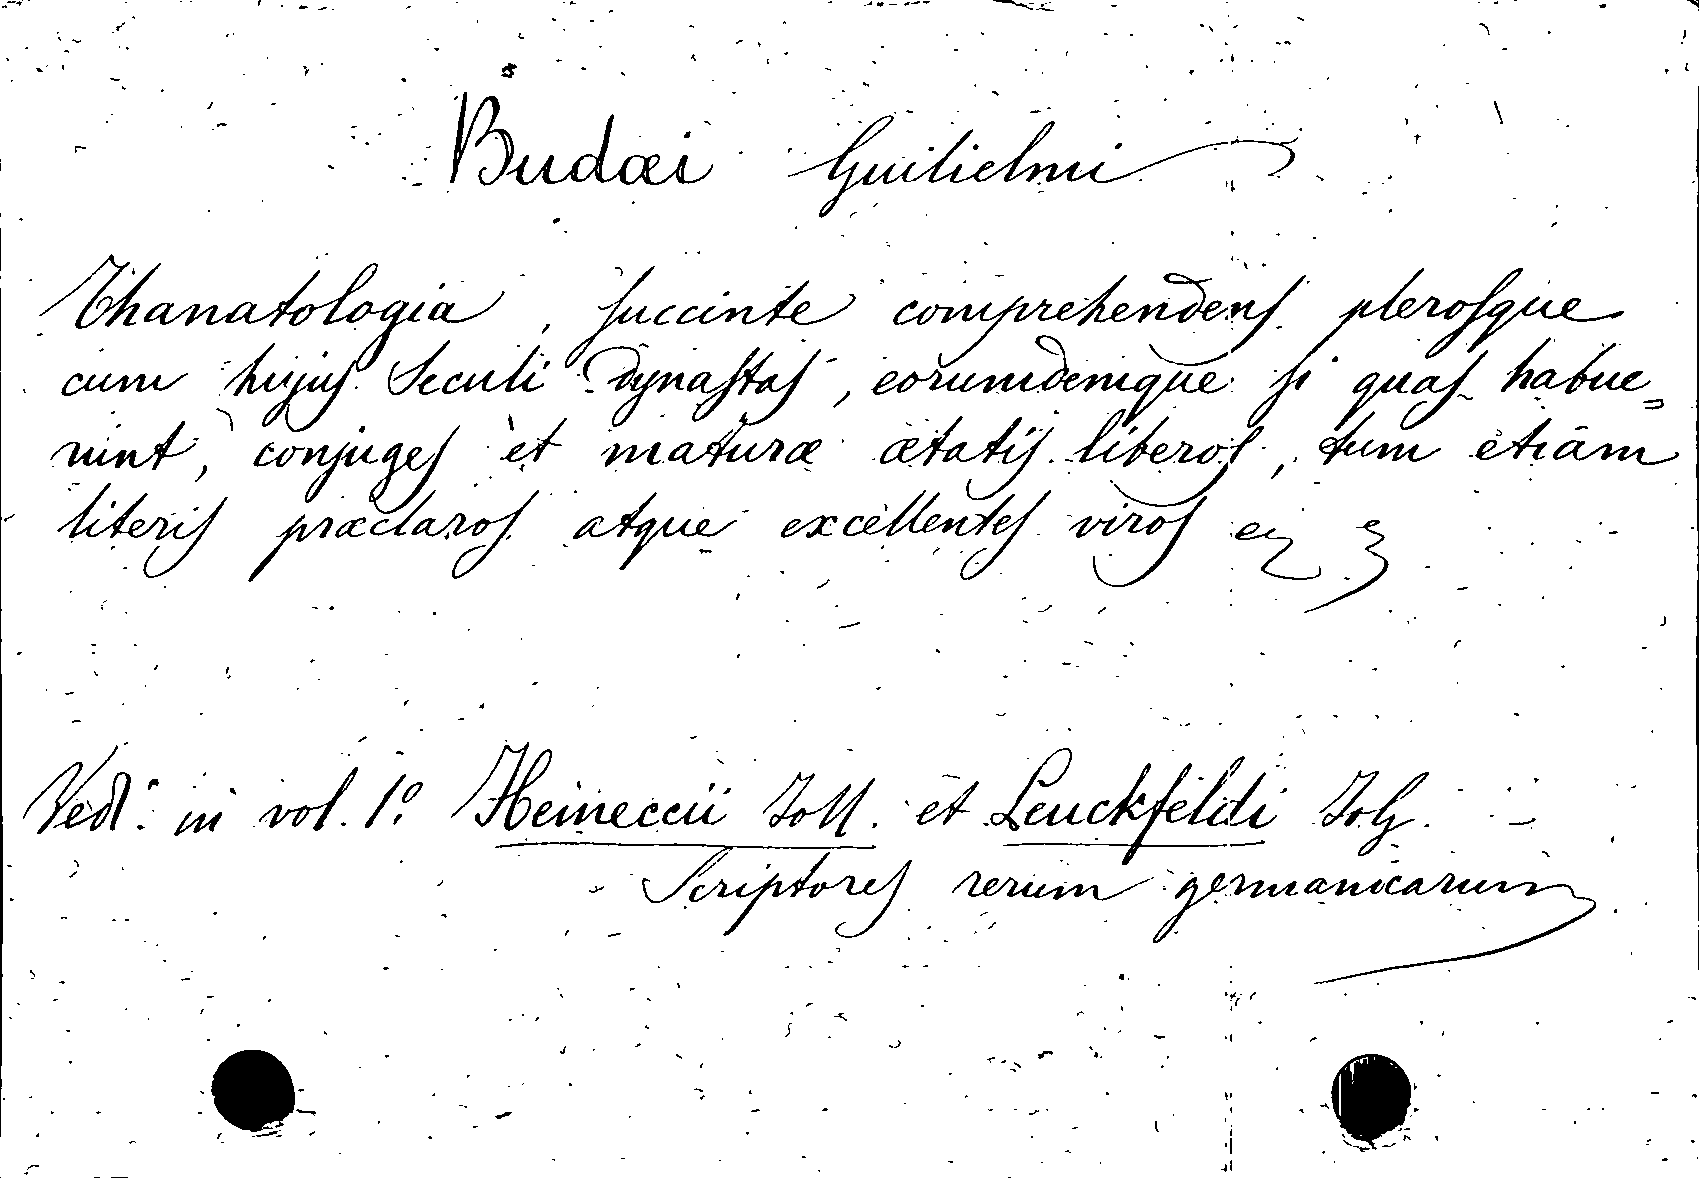 Budæi Guilielmi
Thanatologia, succinte comprehendens plerosque
cum hujus Seculi Dynastas, eorumdemque si quas habue=
runt, conjuges et maturæ ætatis liberos, tum etiam
literis præclaros atque excellentes viros
Ved: in vol. 1º Heineccii Joh. et Leuckfeldi Joh.
Scriptores rerum germanicarum